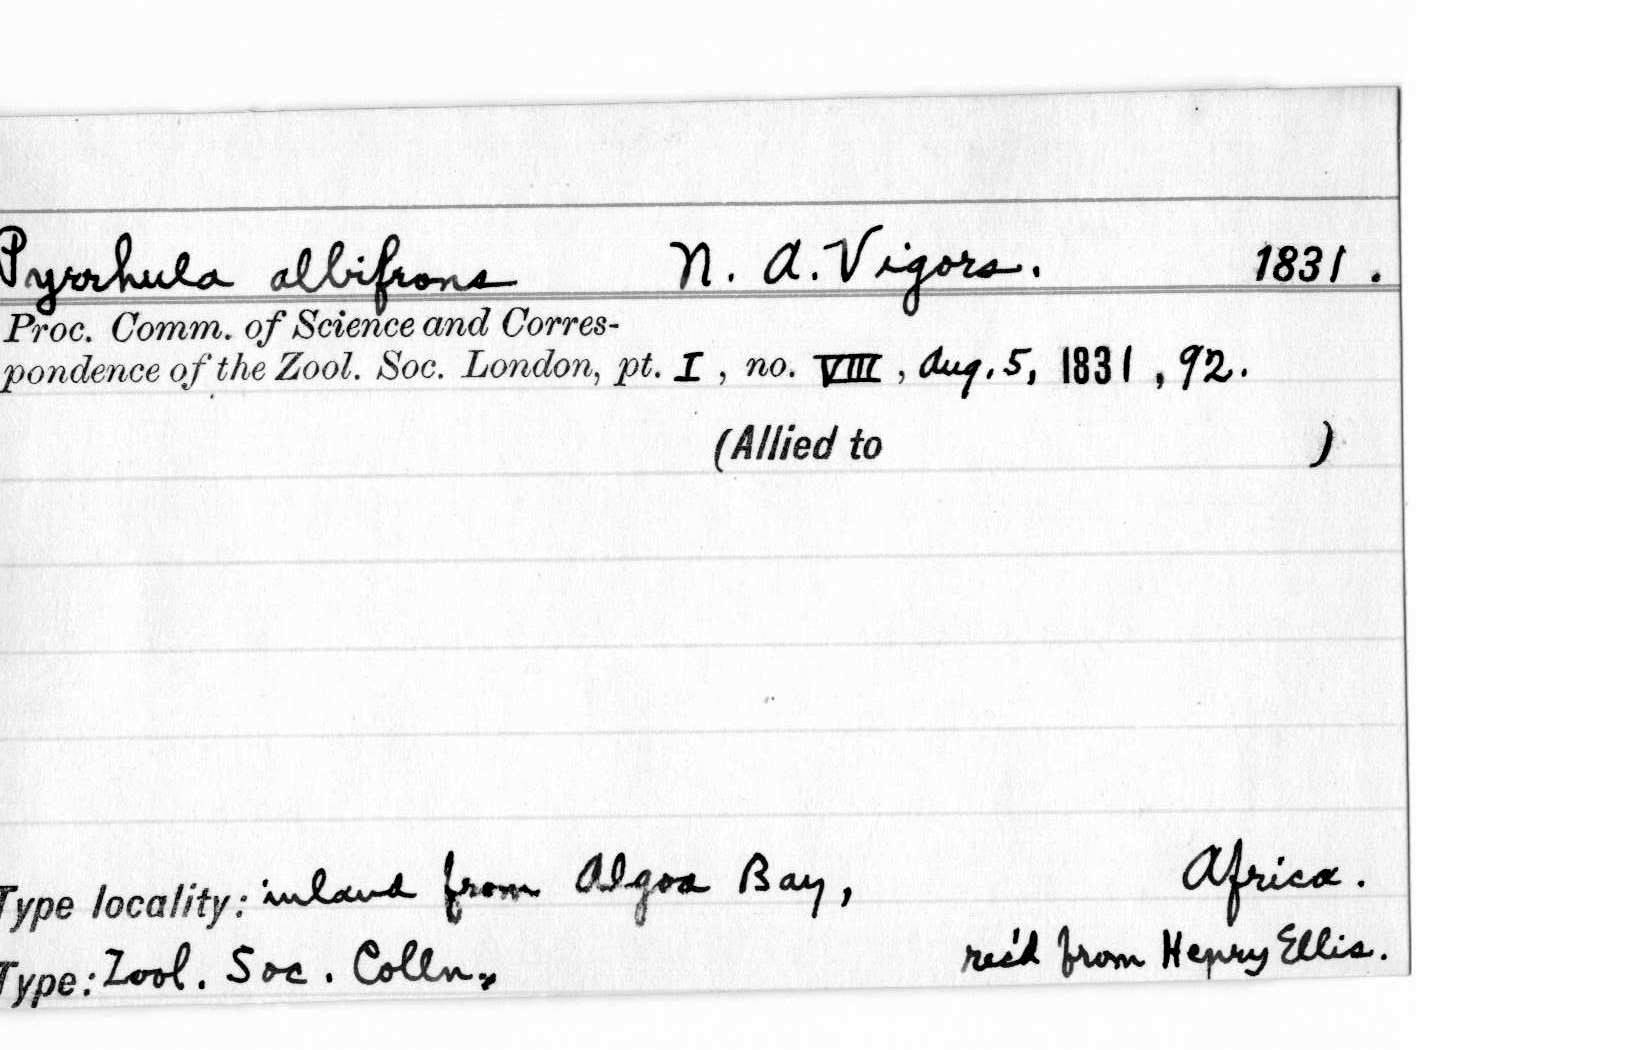 Pyrrhula albifrons N. A. Vigors. 1831.
Proc. Comm. of Science and Corres-
pondence of the Zool. Soc. London, pt. I, no. VIII, Aug. 5, 1831, 92.
(Allied to )
Type locality: inland from Algoa Bay, Africa.
Type: Zool. Soc. Colln., rec'd from Henry Ellis.